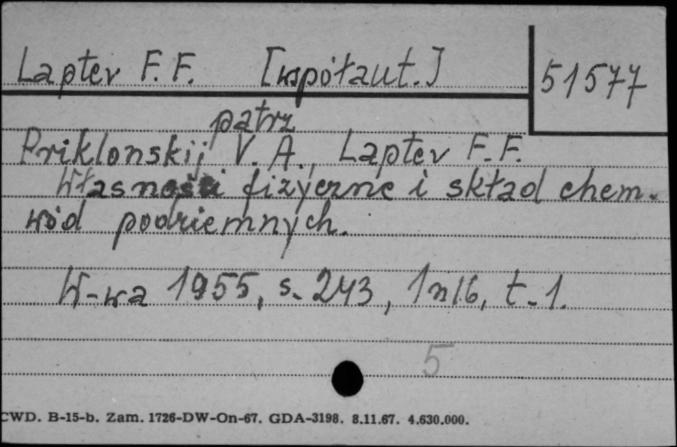 Laptev F. F. [współaut.] 51577
patrz
Priklonskij V. A., Laptev F. F.
Własności fizyczne i skład chem.
wód podziemnych.
W-wa 1955, s. 243, 1nlb, t. 1.
5
CWD. B-15-b. Zam. 1726-DW-On-67. GDA-3198. 8.11.67. 4.630.000.